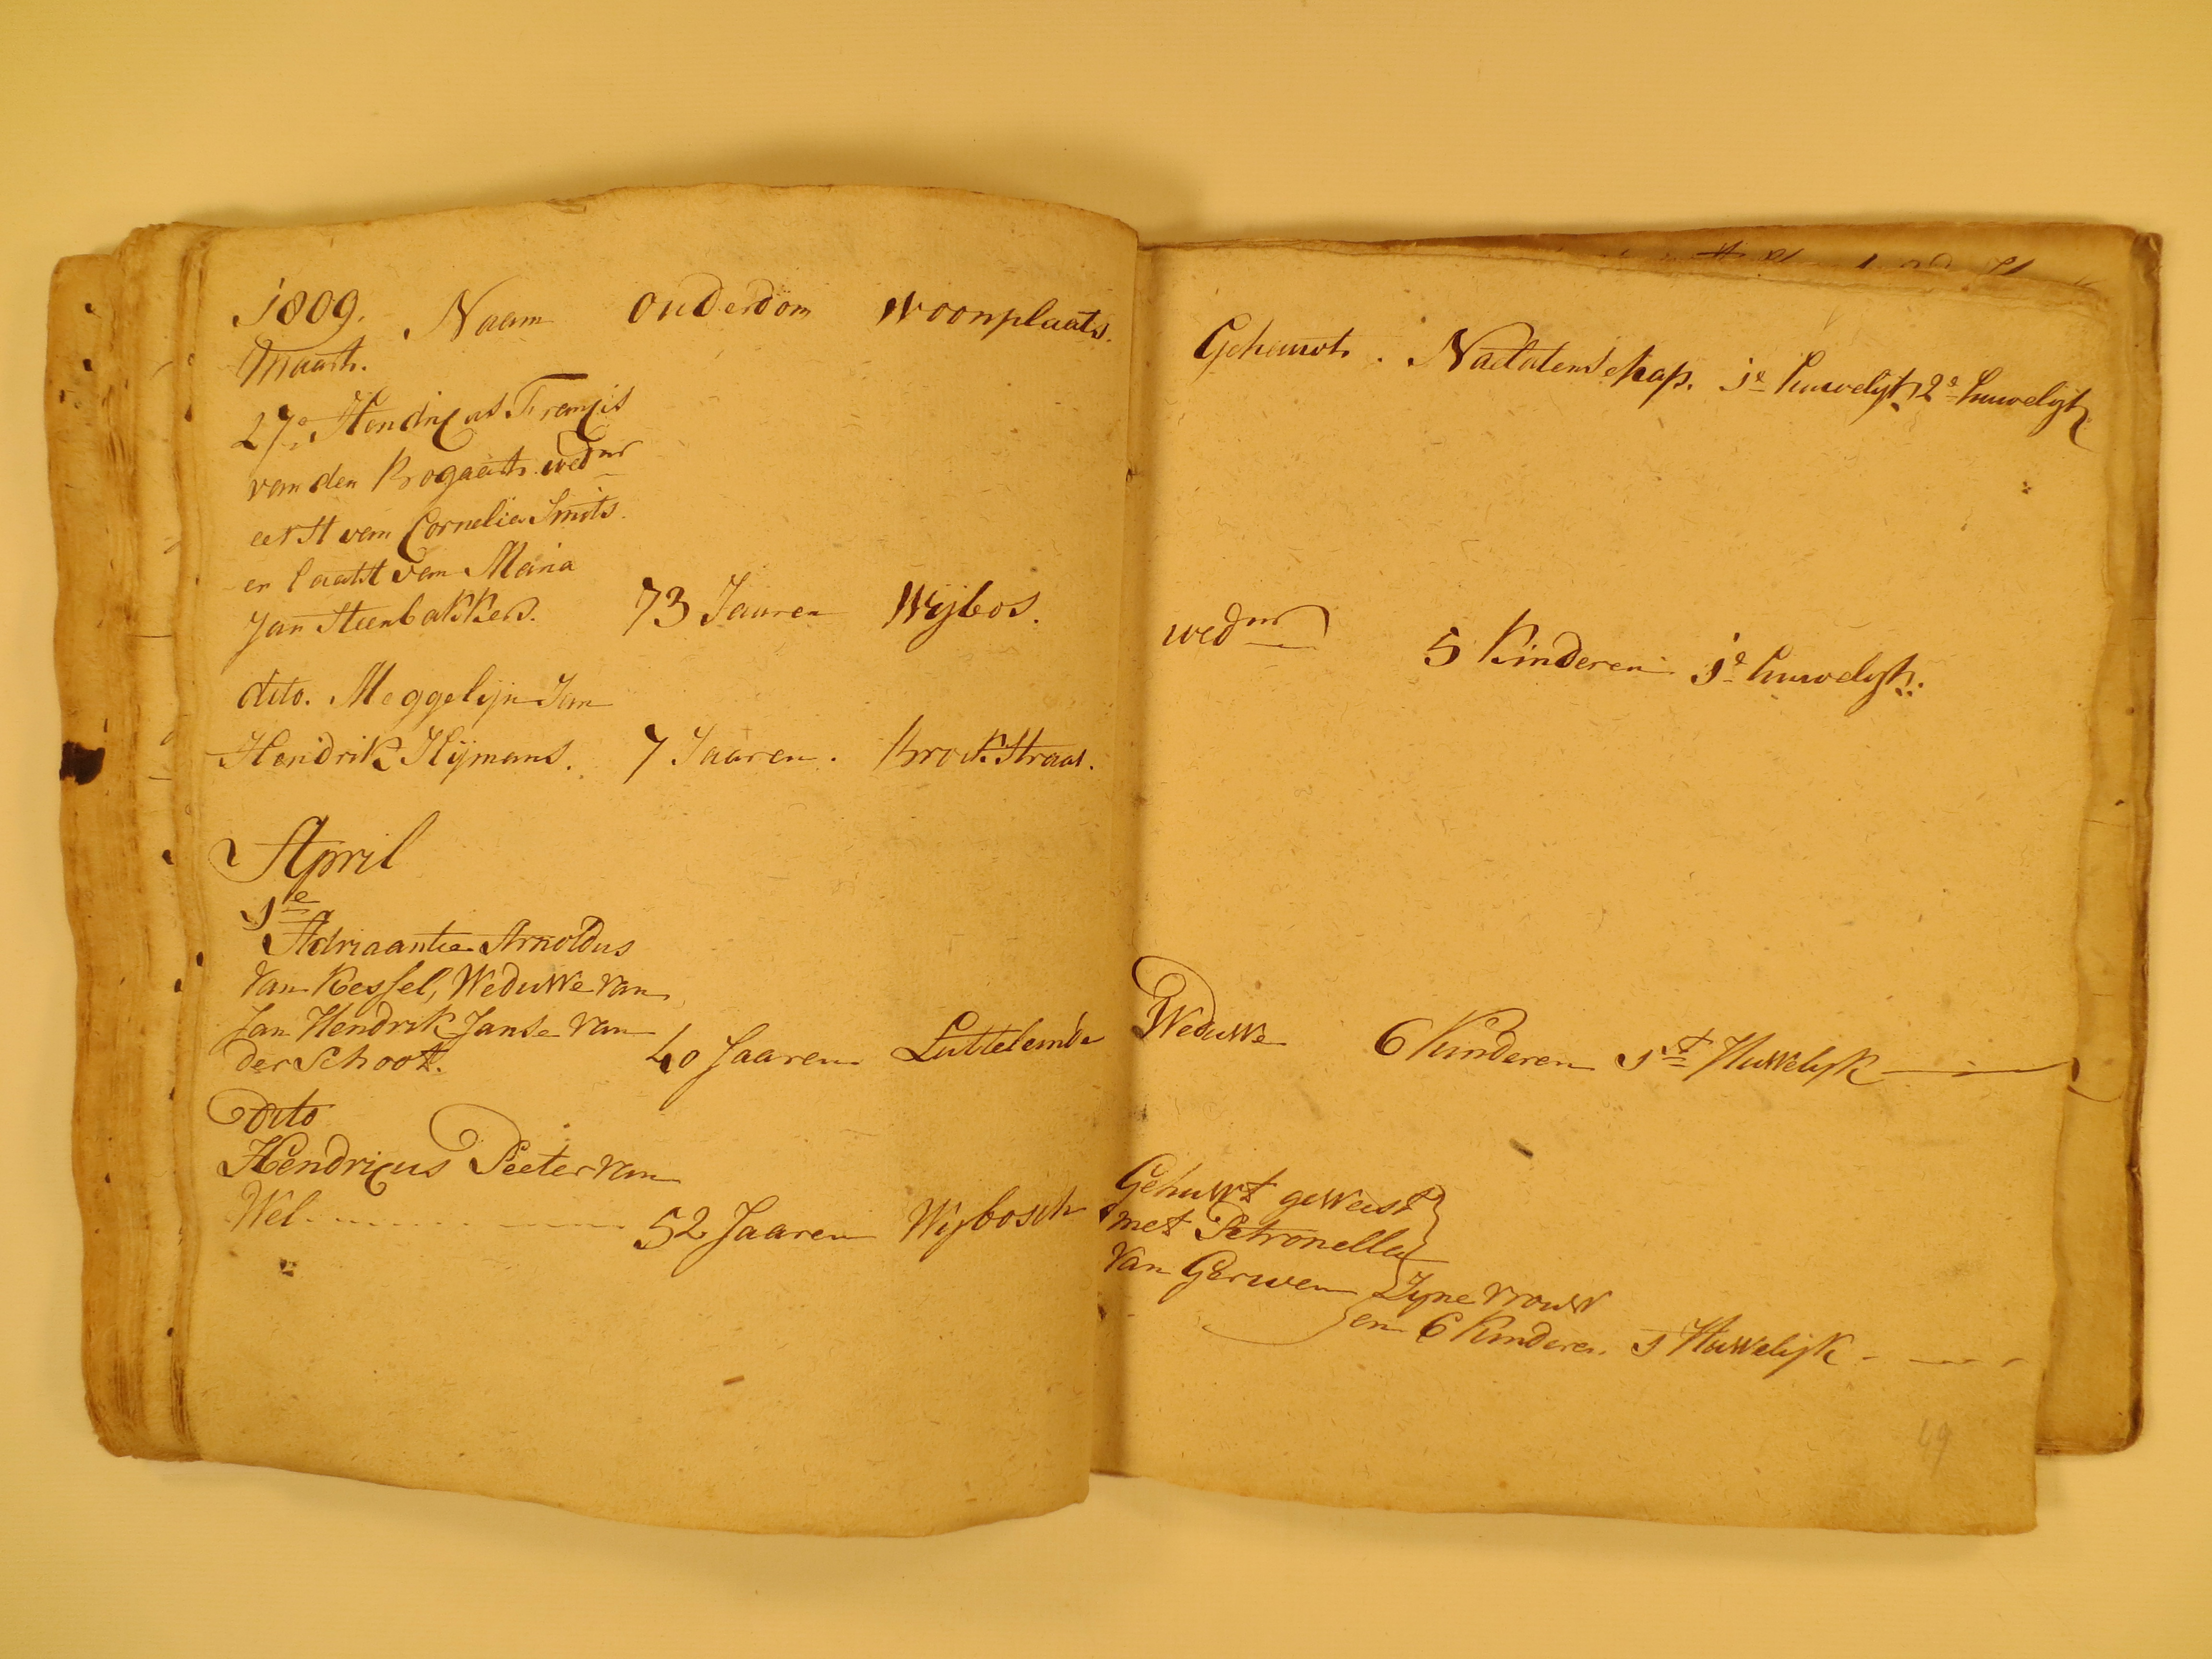 1809. Naam Ouderdom Woonplaats.
Maart.
27e Hendricus Francis
van den Bogaart wednr
eerst van Cornelia Smits
en laatst van Maria
Jan Steenbakkers. 73 Jaaren Wijbos.
dito. Meggelijn Jan
Hendrik Hijmans. 7 Jaaren. Broekstraat.
April
1e
Adriaantie Arnoldus
Van Kessel, Weduwe van
Jan Hendrik Janse van
der Schoot. 40 Jaaren Lutteleinde
Dito
Hendricus Peeter van
Wel 52 Jaaren Wijbosch
Gehuwt. Naelatenschap. 1e huwelijk 2e huwelijk
wednr 5 Kinderen 1e huwelijk.
Weduwe 6 Kinderen 1st Huwelijk
Gehuwt geweest
met Petronella
Van Gerwen Zijne vrouw
en 6 Kinderen. 1 Huwelijk
49